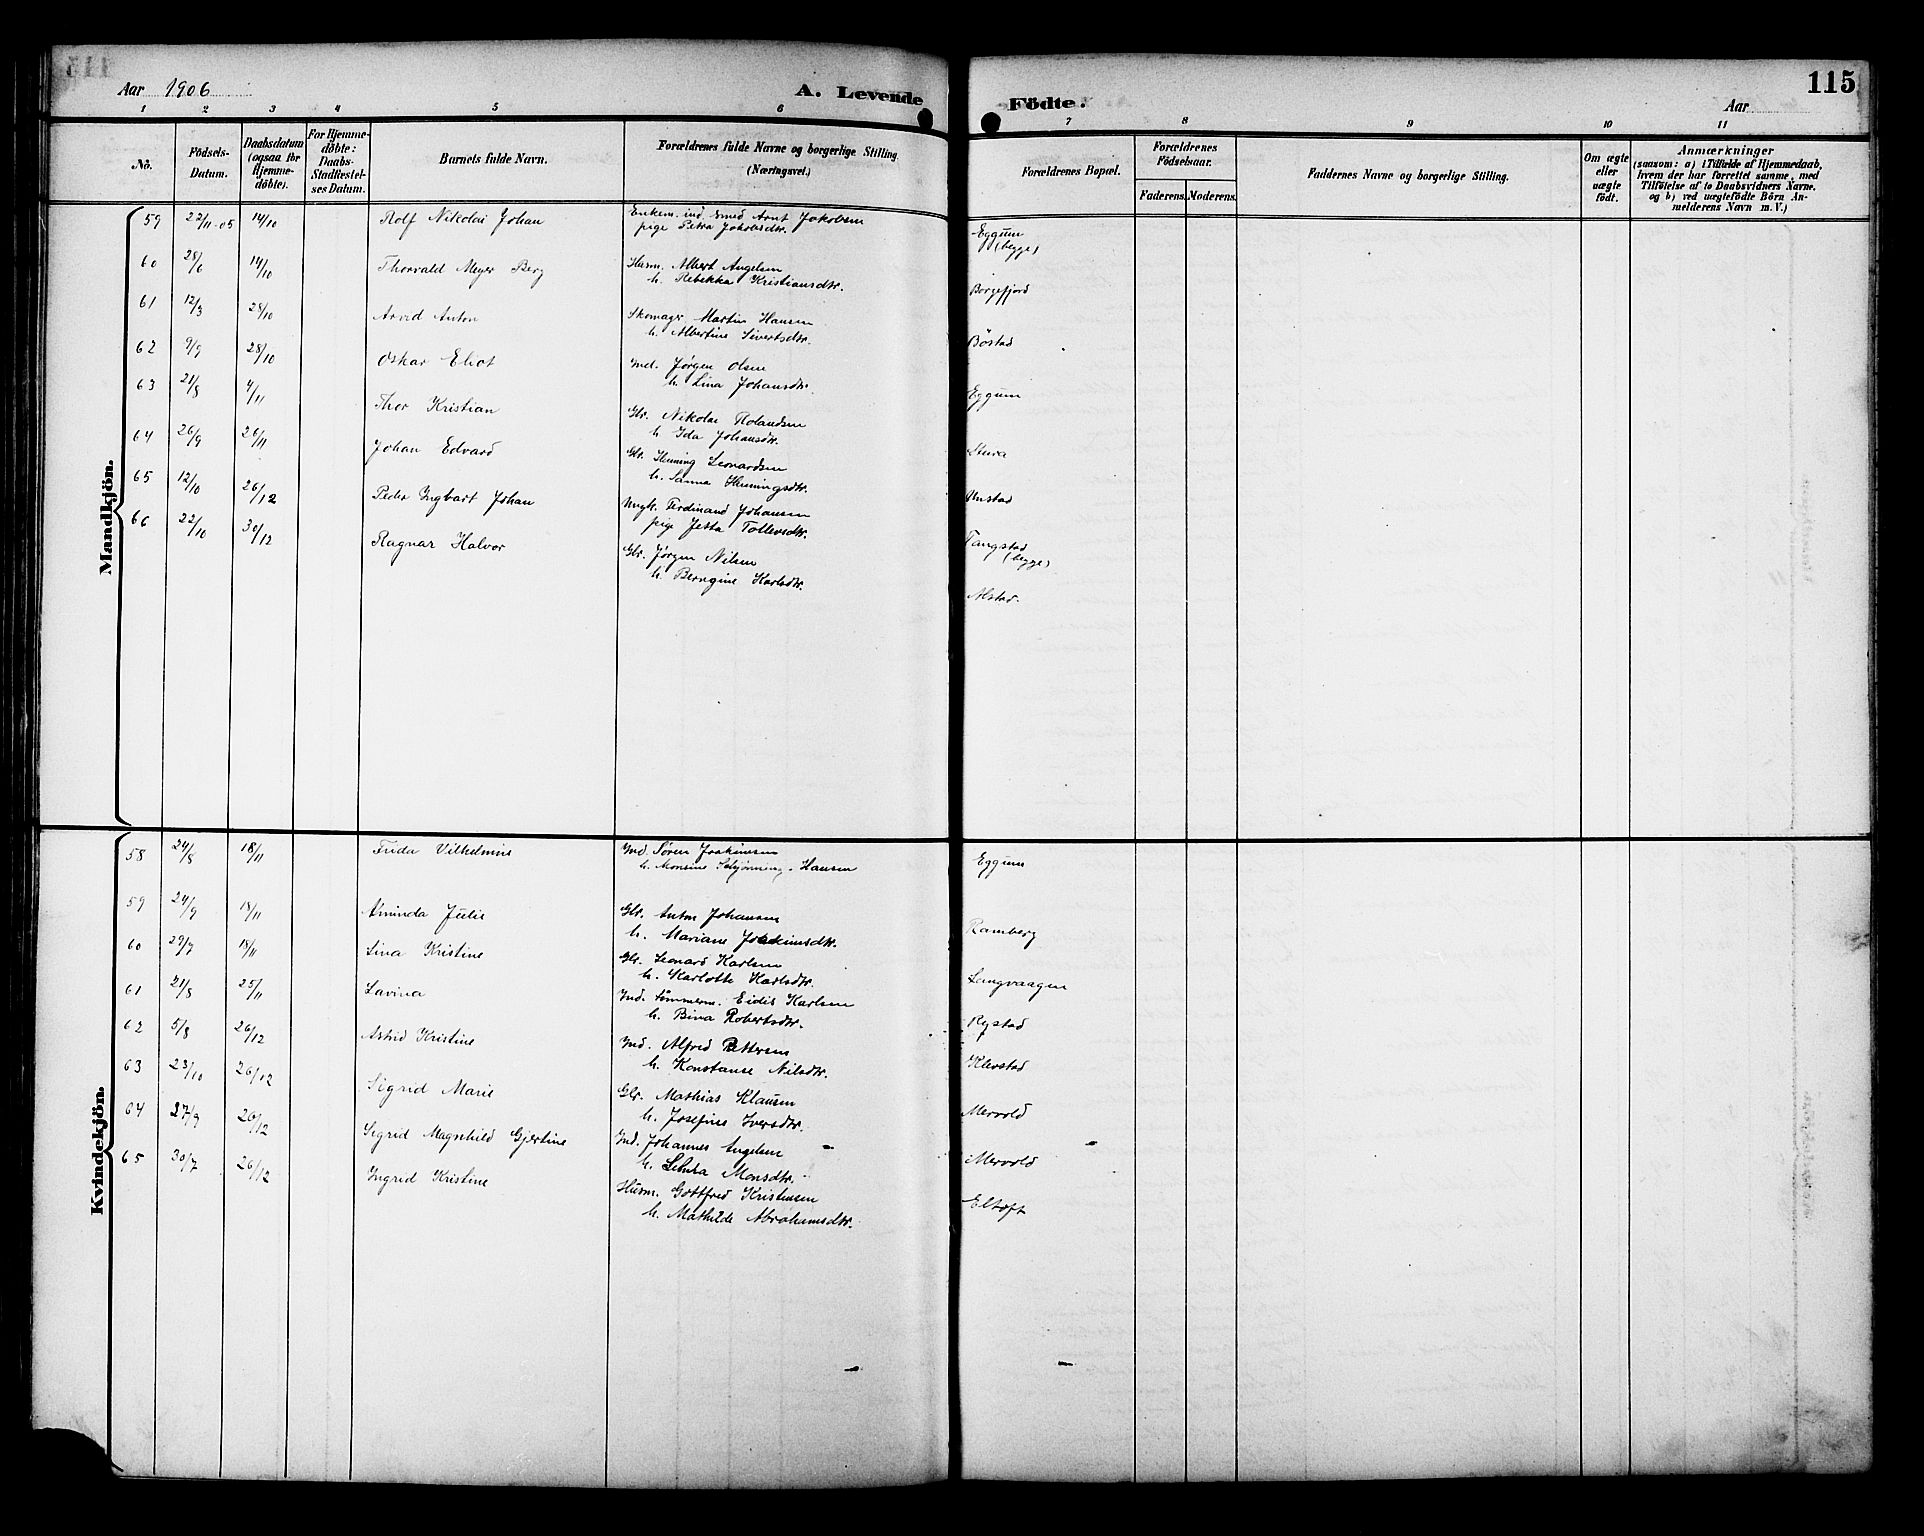 Aar 1906
A. Levende Födte.
Aar
115
1 2 3 4 5 6 7 8 9 10 11
No.
Födsels-Datum.
Daabsdatum (ogsaa for Hjemmedöbte).
For Hjemmedöbte: Daabs-Stadfæstelses Datum.
Barnets fulde Navn.
Forældrenes fulde Navne og borgerlige Stilling. (Næringsvei.)
Forældrenes Bopæl.
Forældrenes Födselsaar.
Faderens. Moderens.
Faddernes Navne og borgerlige Stilling.
Om ægte eller uægte födt.
Anmærkninger
(saasom: a) i Tilfælde af Hjemmedaab, hvem der har forrettet samme, med Tilföielse af to Daabsvidners Navne, og b) ved uægtefödte Börn Anmelderens Navn m. V.)
Mandkjön.
59 22/11-05 14/10 Rolf Nikolai Johan Enkem. ind. smed Arnt Jakobsen Eggum
pige Petra Jakobsdtr. (begge)
60 28/6 14/10 Thorvald Meyer Berg Husm. Albert Angelsen Borgefjord
h. Rebekka Kristiansdtr.
61 12/3 28/10 Arvid Anton Skomager Martin Hansen Böstad
h. Albertine Sivertsdtr.
62 9/9 28/10 Oskar Eliot Ind. Jørgen Olsen Eggum
h. Lina Johansdtr.
63 21/8 4/11 Thor Kristian Gbr. Nikolai Rolandsen
h. Ida Johansdtr.
64 26/9 26/11 Johan Edvard Gbr. Henning Leonardsen Unstad
h. Sanna Henningsdtr.
65 12/10 26/12 Peder Ingbart Johan Ungk. Ferdinand Johansen Tangstad
pige Jetta Tollevsdtr. (begge)
66 22/10 30/12 Ragnar Halvor Gbr. Jørgen Nilsen Alstad.
h. Berngine Karlsdtr.
Kvindekjön.
58 24/8 18/11 Frida Vilhelmine Ind Søren Joakimsen Eggum
h. Monsine Schjønning-Hansen
59 24/9 18/11 Aminda Julie Gbr. Anton Johansen Ramberg
h. Mariane Joakimsdtr.
60 29/7 18/11 Lina Kristine Gbr. Leonard Karlsen Langvaagen
h. Karlotte Karlsdtr.
61 21/8 25/11 Lavina Ind. Tømmerm. Eidis Karlsen Rystad
h. Bina Robertsdtr.
62 5/8 26/12 Astrid Kristine Ind. Alfred Pettersen Klevstad
h. Konstanse Nilsdtr.
63 23/10 26/12 Sigrid Marie Gbr. Mathias Klausen Mervold
h. Josefine Iversdtr.
64 27/9 26/12 Sigrid Magnhild Gjertine Ind. Johannes Angelsen Mervold
h. Monsdtr.
65 30/7 26/12 Ingrid Kristine Husm. Gottfred Kristensen Eltoft
h. Mathilde Abrahamsdtr.